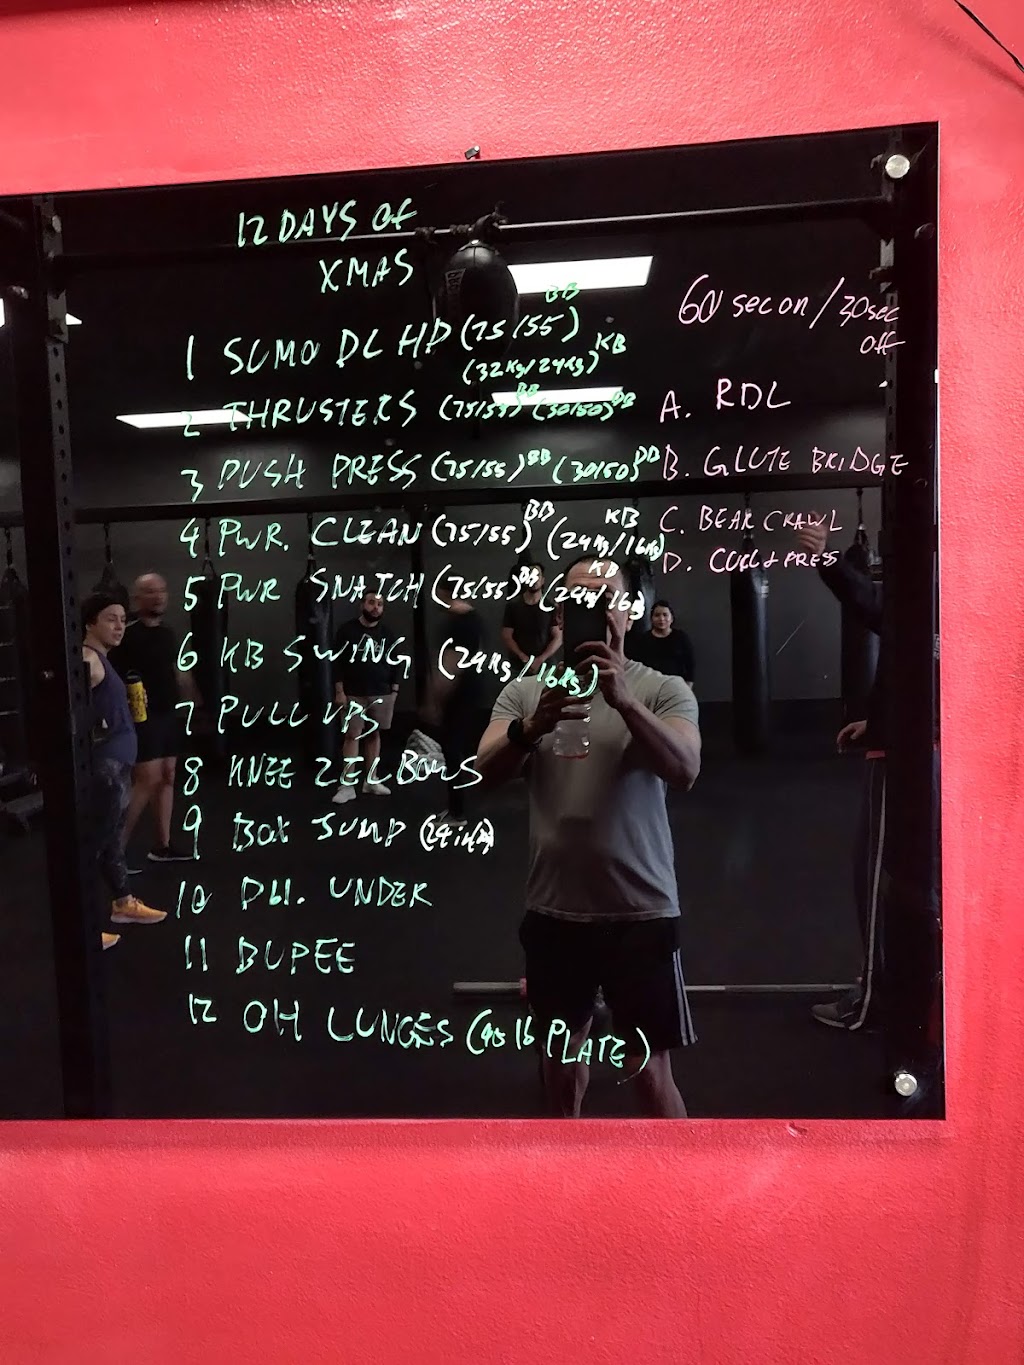 12 DAYS OF
XMAS
1 SUMO DL HP (75/55) BB
(32Kg/24Kg) KB
2 THRUSTERS (75/55) BB (30/50) DB
3 PUSH PRESS (75/55) BB (30/50) DB
4 PWR. CLEAN (75/55) BB (24Kg/16Kg) KB
5 PWR SNATCH (75/55) BB (24Kg/16Kg) KB
6 KB SWING (24Kg/16Kg)
7 PULL UPS
8 KNEE 2 ELBOWS
9 BOX JUMP (24in/
10 DBL. UNDER
11 BUPEE
12 OH LUNGES (45 lb PLATE)
60 sec on / 30sec
off
A. RDL
B. GLUTE BRIDGE
C. BEAR CRAWL
D. CURL & PRESS